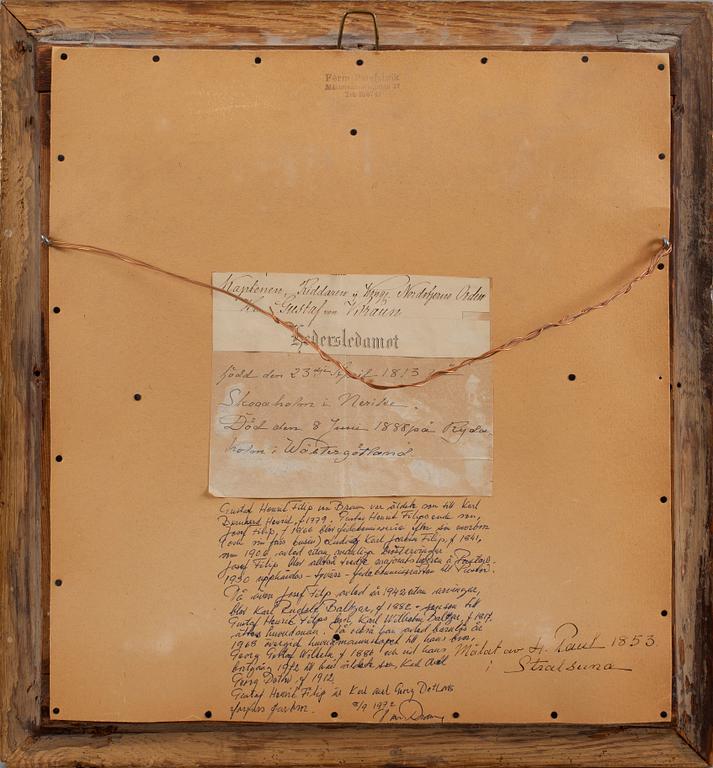 Kaptenen, Riddaren af Kongl. Nordstjerne Orden
Gustaf von Braun
Hedersledamot
född den 23 April 1813
Skogaholm i Nerike.
Död den 8 Juni 1888 på Ryda
holm i Wästergötland.
Gustaf Henric Filip von Braun var äldste son till Karl
Bernhard Henric, f 1779. Gustaf Henric Filips ende son,
Josef Filip, f 1866 blev fideikommissarie efter sin morbror
Ludvig Karl Joakim Filip, f 1841,
som 1906 avled utan manliga bröstarvingar
Josef Filip blev alltså tredje majoratsherren å
1930 upphävdes fideikommissrätten till
Då även Josef Filip avled år 1942 utan arvingar,
blev Karl Rudolf Baltzar, f 1882 sonson till
Gustaf Henric Filips bror, Karl Wilhelm Baltzar, f 1817,
ättens huvudman. Då också han avled barnlös år
1968 övergick huvudmannaskapet till hans bror,
Georg Gustaf Wilhelm f 1886 och vid hans
bortgång 1972 till hans äldste son, Karl Axel
Georg Detlof f 1912.
Gustaf Henric Filip är Karl Axel Georg Detlofs
farfars farbror. 8/9 1972
Målat av H. Paul 1853
i Stralsund